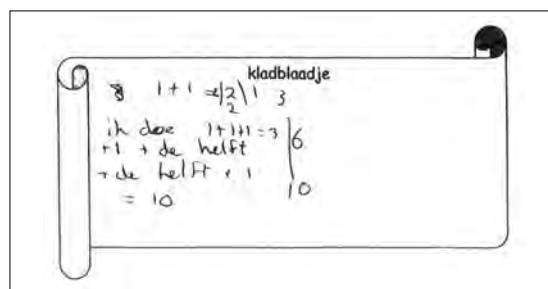 kladblaadje
1 + 1 = 2 \ 1 3
2
ik doe 1+1+1 = 3 | 6
+1 + de helft
+ de helft + 1
= 10 10